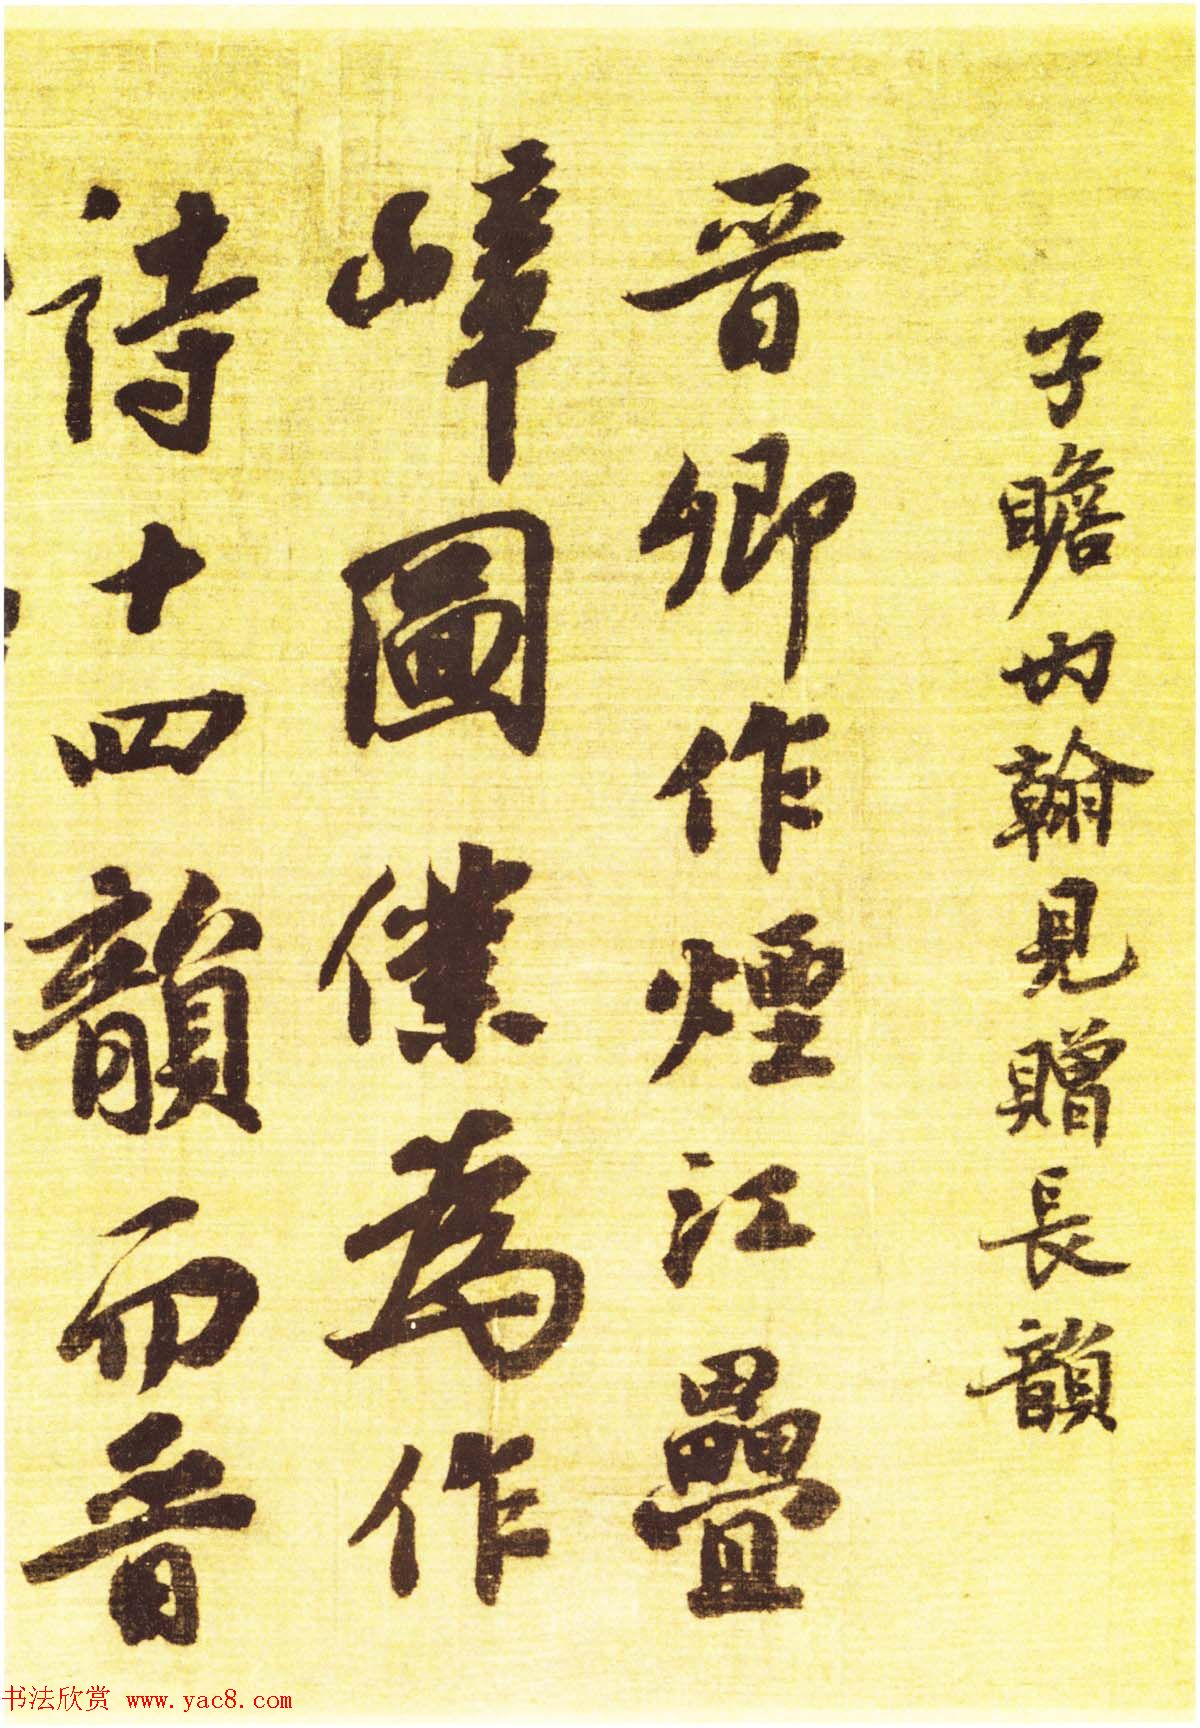 子瞻內翰見贈長韻
晉卿作煙江疊
嶂圖僕為作
詩十四韻而晉
书法欣赏 www.yac8.com